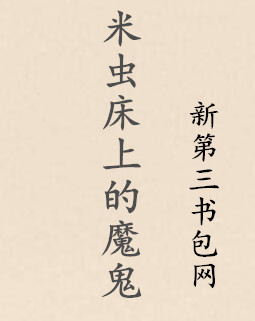 米虫床上的魔鬼
新第三书包网